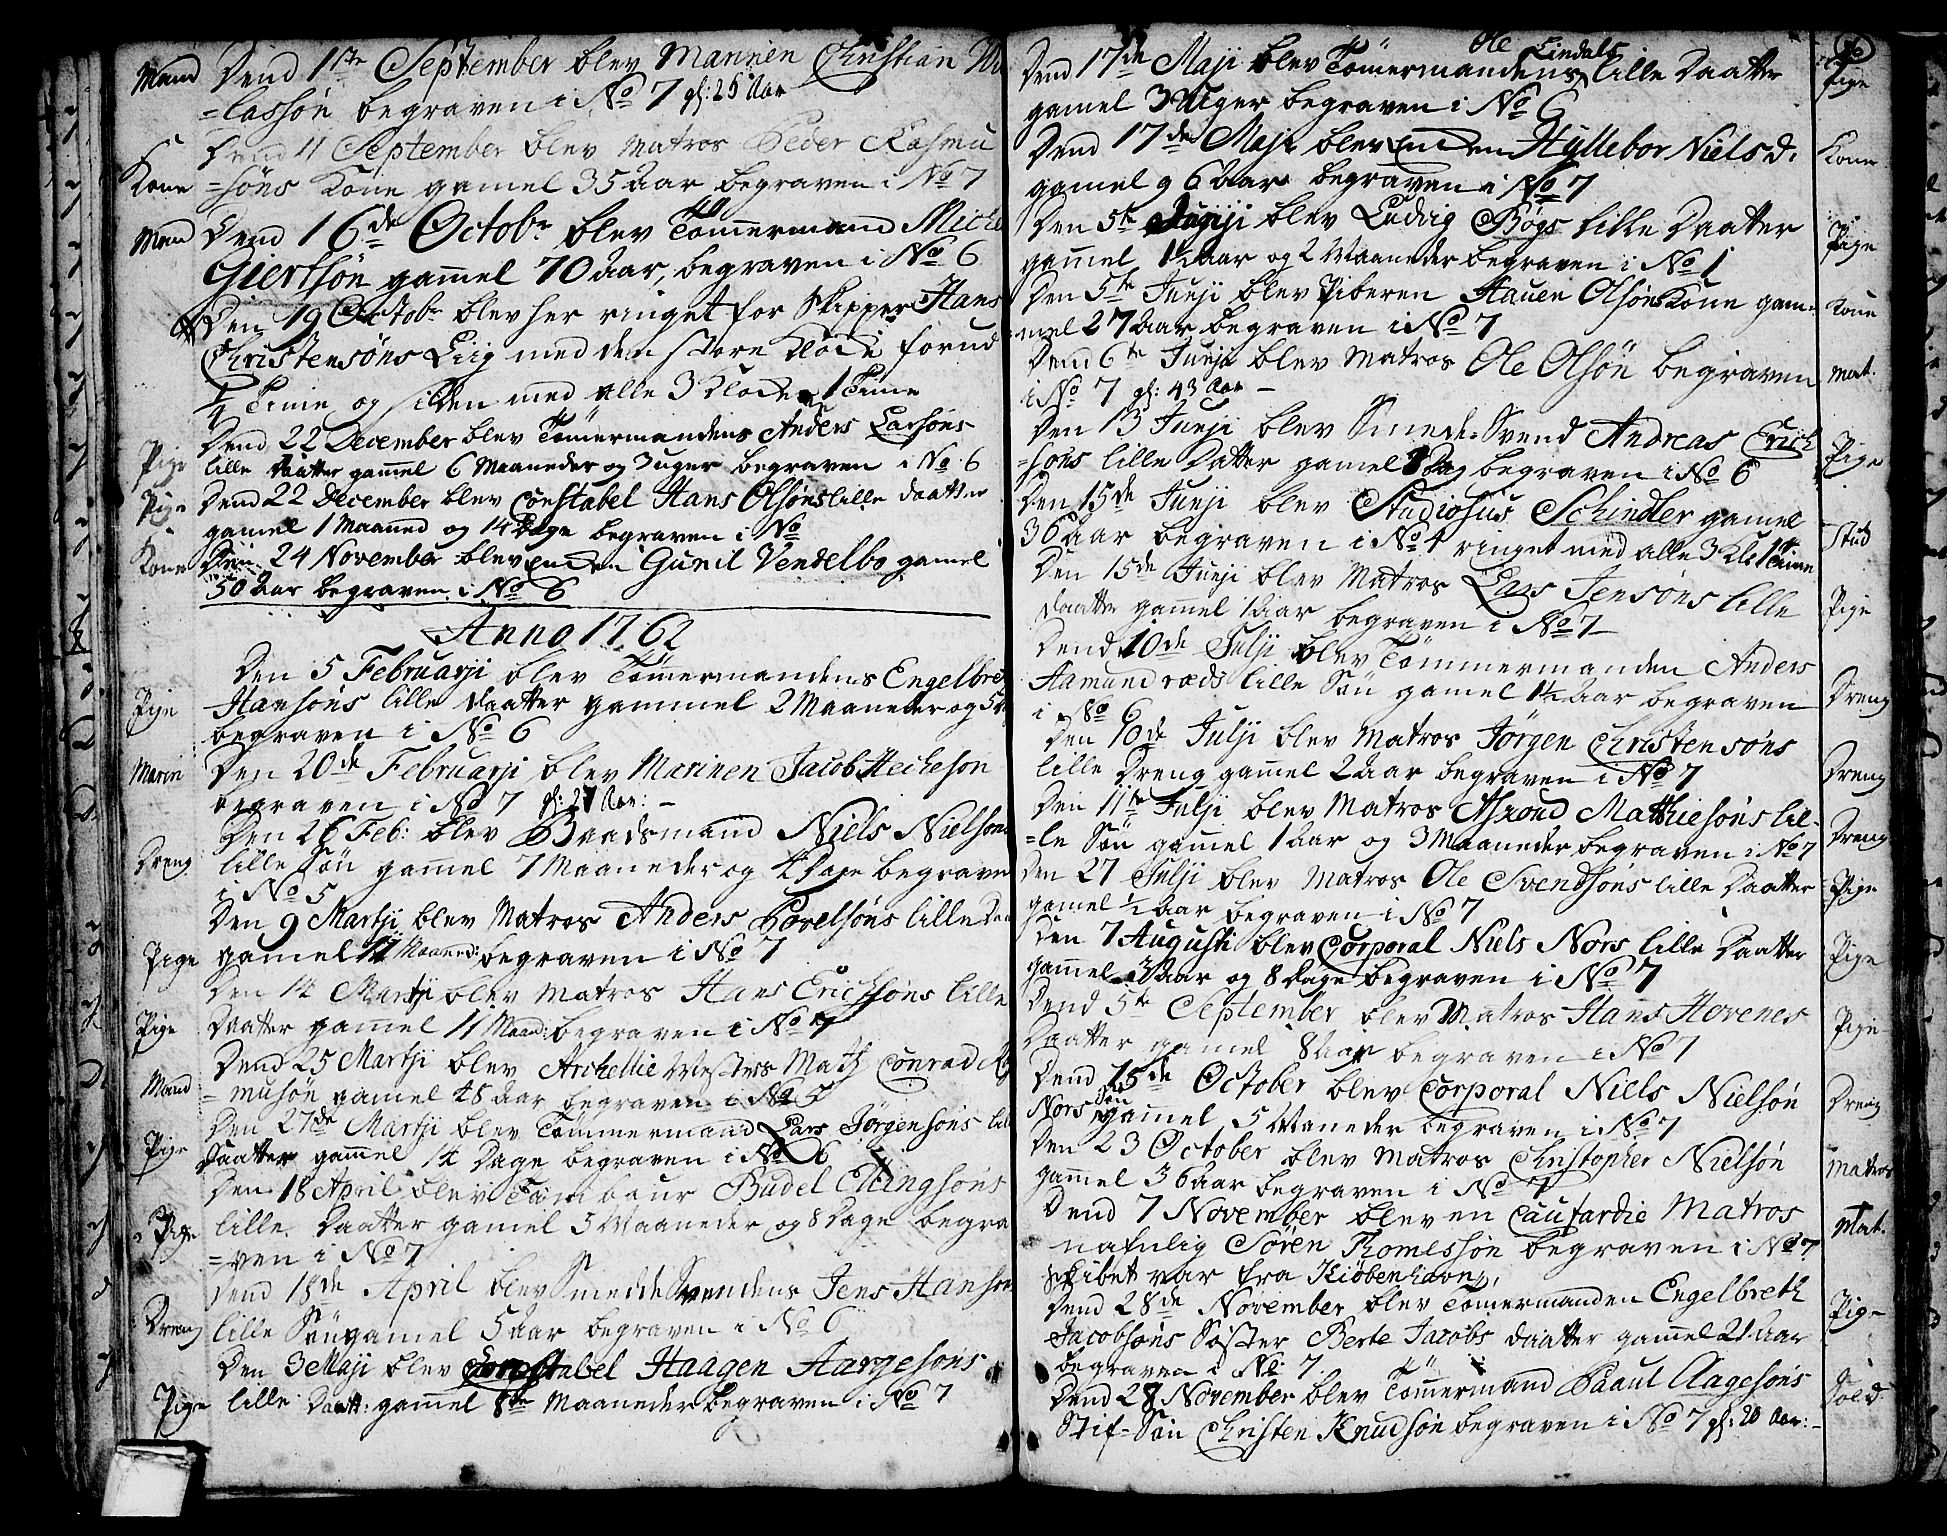 Mand Dend 1ste September blev Marinen Christian
=lassøn begraven i No 7 gl: 25 Aar
Dend 11 September blev Matros Peder Rasmu
Kone =søns Kone gamel 35 Aar begraven i No 7
Man Dend 16de Octobr blev Tömermand Mich
Giertsøn gamel 70 Aar, begraven i No 6
Den 19 Octobr blev her ringet for Skipper Hans
Christensøns Liig med den store Klocke forud
1/4 Time og siden med alle 3 Klocker 1 Time
Dend 22 December blev Tömermandens Anders Larsøns
Pige lille Daatter gamel 6 Maaneder og 3 uger begraven i No: 6
Pige Dend 22 December blev Constabel Hans Olsøns lille Daatter
gamel 1 Maaned og 14 Dage begraven i No
Kone Den 24 November blev Enchen Gunil Vendelbo gamel
50 Aar begraven i No 6
Anno 1762
Den 5 Februarji blev Tömermandens Engelbre
Pige Hansøns lille Daatter gammel 2 Maaneder og 5
begraven i No 6
Marin Den 20de Februarji blev Marinen Jacob Mecheson
begraven i No 7 gl: 27 Aar: –
Den 26 Feb: blev Baadsmand Niels Nielsøns
Dreng lille Søn gamel 7 Maaneder og 4 Dage begrave
i No 5
Den 9 Martji blev Matros Anders Povelsøns lille
Pige gamel 11 Maaned: begraven i No 7
Den 14 Martji blev Matros Hans Erichsøns lille
Pige Daatter gamel 11 Maan: begraven i No 7
Dend 25 Martji blev Archellie Mesters Math Conrad
Mand =musøn gamel 48 Aar begraven i No 5
Den 27de Martji blev Tömmermand Lars Jørgensøns lill
Pige Daatter gamel 14 Dage begraven i No 6
Den 18 April blev Tambaur Budel Ellingsøns
Pige lille Daatter gamel 5 Maaneder og 8 Dage begra
=ven i No 7
Dend 18de April blev Smedde Svendens Jens Hansøn
Dreng lille Søn gamel 5 Aar begraven i No 6
Den 3 Maji blev Constabel Haagen Aargesøns
Pige lille Daatt: gamel Maaneder begraven i No 7
Dend 17de Maji blev Tömermandens Ole Lindals lille Daatter Pige
gamel 3 Uger begraven i No 6
Dend 17de Maji blev Enchen Hyllebor Niels d. Kone
gamel 96 Aar begraven i No 7
Den 5te Junji blev Ludvig Bøgs lille Daatter Pige
gamel 1 Aar og 2 Maaneder begraven i No 1
Den 5te Junji blev Piberen Hauen Olsøns Kone gam= Kone
mel 27 Aar begraven i No 7
Dend 6te Junji blev Matros Ole Olsøn begraven Mat.
i No 7 gl: 43 Aar –
Den 13 Junji blev Smede Svend Andreas Erich
=søns lille Datter gamel 8 Dag begraven i No 6 Pige
Den 15de Junji blev Studiosus Schindler gamel
36 Aar begraven i No 4 ringet med alle 3 Kl: 1 Time Stud
Den 15de Junji blev Matros Lars Jensøns lille
Daatter gamel 1 Aar begraven i No 7 Pige
Dend 10de Julji blev Tömmermanden Anders
Aamundrøds lille Søn gamel 1 1/2 Aar begraven Dreng
i No 6
Den 10de Julji blev Matros Jørgen Christensøns
lille Dreng gamel 2 Aar begraven i No 7 Dreng
Den 11te Julji blev Matros Asroud Mathiesøns lil-
=le Søn gamel 1 Aar og 3 Maaneder begraven i No 7 Dreng
Den 27 Julji blev Matros Ole Svendsøns lille Daatter Pige
gamel 1/2 Aar begraven i No 7
Den 7 Augusti blev Corporal Niels Nors lille Daatter Pige
gamel 3 Aar og 8 Dage begraven i No 7
Dend 5te September blev Matros Hans Hovenes
Daatter gamel 8 Aar begraven i No 7 Pige
Dend 15de October blev Corporal Niels Nielsøn
Nors Søn gamel 5 Maneder begraven i No 7 Dreng
Den 23 October blev Matros Christopher Nielsøn Matros
gamel 36 Aar begraven i No 7
Dend 7 November blev en Caufardie Matros Mat.
nafnlig Søren Thomessøn begraven i No 7
Skibet var fra Kiøbenhavn,
Dend 28de November blev Tömermanden Engelbreth Pige
Jacobsøns Søster Berte Jacobs daatter gamel 21 Aar
begraven i No: 7
Dend 28 November blev Tömermand Paaul Aagesøns Sold.
Stif-Søn Christen Knudsøn begraven i No 7 gl: 20 Aar:–